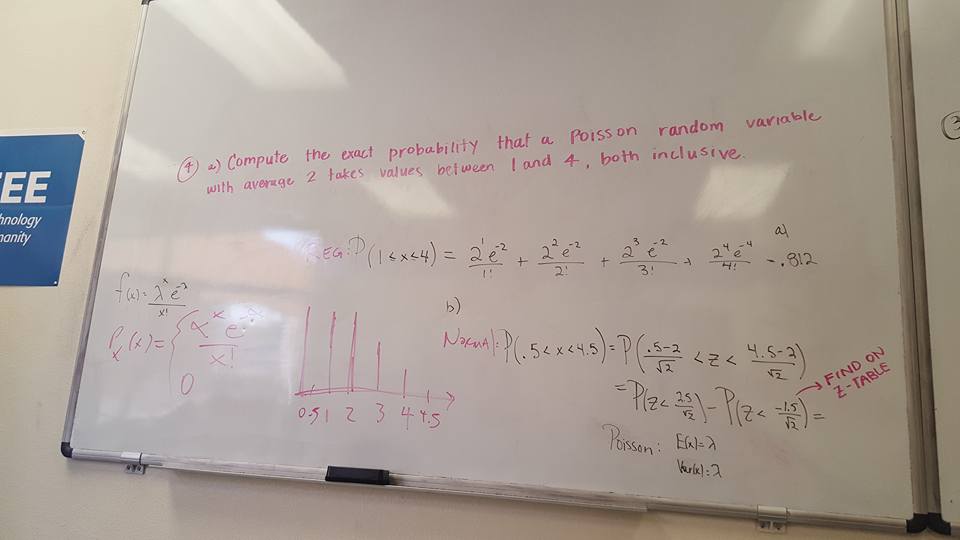 ④ a) Compute the exact probability that a Poisson random variable
with average 2 takes values between 1 and 4, both inclusive.
EE
hnology
manity
REG: P(1≤x≤4) = 2¹e⁻²/1! + 2²e⁻²/2! + 2³e⁻²/3! + 2⁴e⁻⁴/4! - .812
a)
f(x) = λˣe⁻λ/x!
Pₓ(x) = { αˣ e⁻α/x!
0
0.5 1 2 3 4 4.5
b)
Normal: P(.5<x<4.5) = P(.5-2/√2 < z < 4.5-2/√2)
= P(z < 2.5/√2) - P(z < -1.5/√2) =
→ FIND ON
Z-TABLE
Poisson: E(x)=λ
Var(x)=λ
③